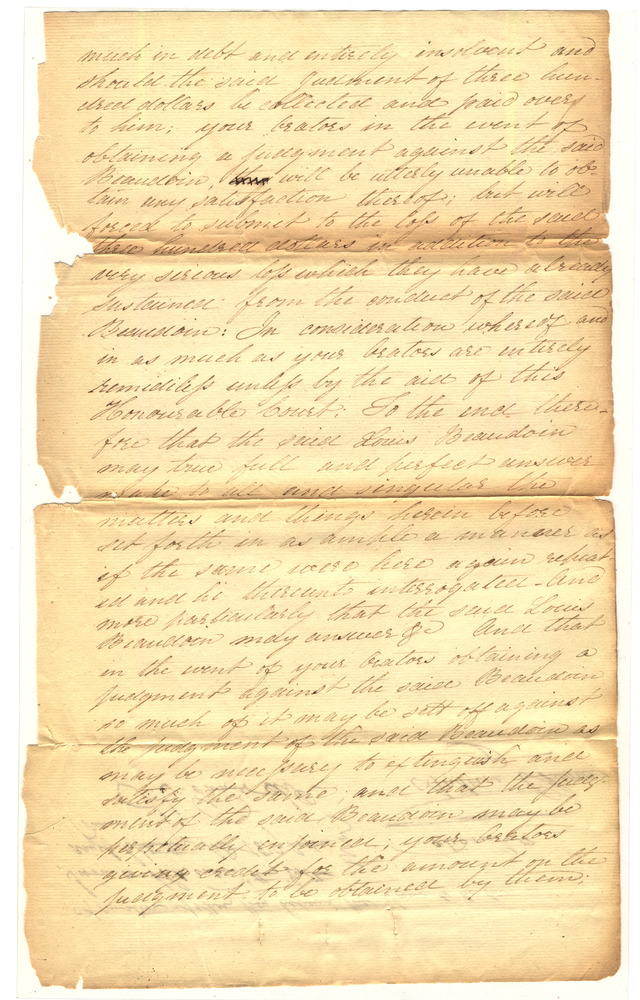 much in debt and entirely insolvent and
should the said Judment of three hun-
dred dollars be collected and paid over
to him; your Orators in the event of
obtaining a judgment against the said
Beaudoin, will be utterly unable to ob-
tain any satisfaction thereof; but will
forced to submit to the loss of the said
three hundred dollars in addition to the
very serious loss which they have already
sustained from the conduct of the said
Beaudoin: In consideration whereof and
in as much as your Orators are entirely
remidiless unless by the aid of this
Honourable Court: To the end there-
fore that the said Louis Beaudoin
may true full and perfect answer
make to all and singular the
matters and things herein before
set forth in as ample a manner as
if the same were here again repeat
ed and he thereunto interrogated - And
more particularly that the said Louis
Beaudoin may answer &c And that
in the event of your Orators obtaining a
judgment against the said Beaudoin
so much of it may be sett off against
the judgment of the said Beaudoin as
may be necessary to extinguish and
satisfy the same; and that the judg-
ment of the said Beaudoin may be
perpetually injoined; your Orators
giving credit for the amount on the
judgment to be obtained by them;